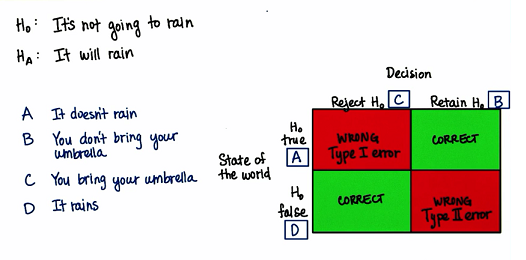 H₀: It's not going to rain
Hₐ: It will rain
A It doesn't rain
B You don't bring your
umbrella
C You bring your umbrella
D It rains
Decision
Reject H₀ C Retain H₀ B
State of
the world
H₀
true
A
WRONG
Type I error
CORRECT
H₀
false
D
CORRECT
WRONG
Type II error